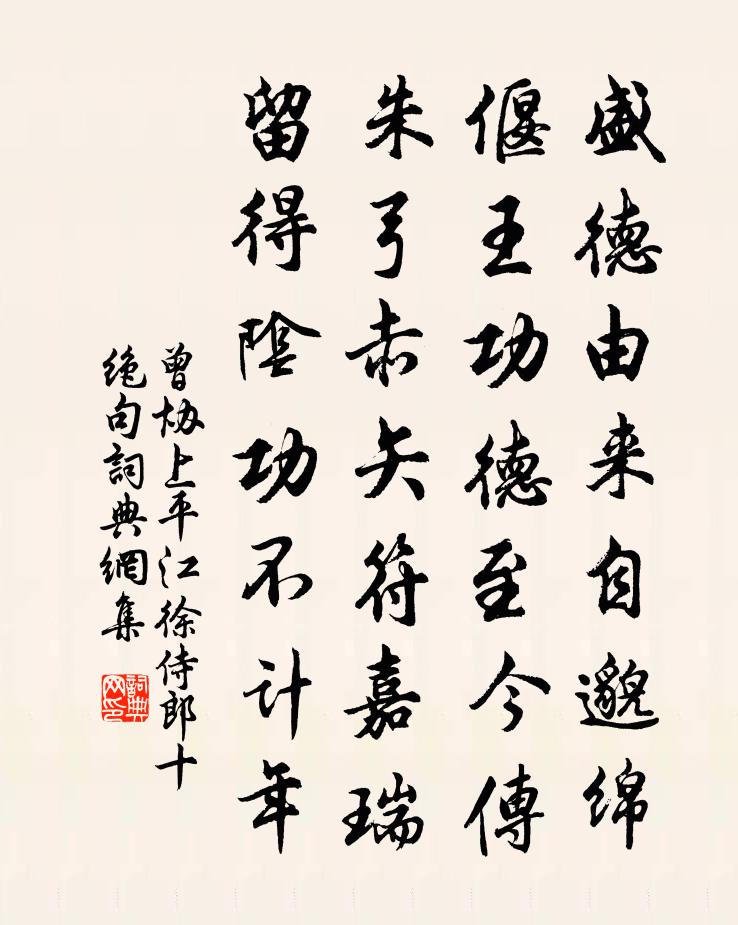 盛德由来自邈綿
偃王功德至今傳
朱弓赤矢符嘉瑞
留得陰功不計年
曾协上平江徐侍郎十
絶句詞典網集
詞典网印